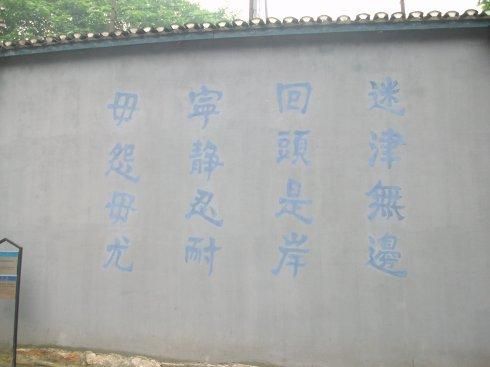 迷津無邊
回頭是岸
寧静忍耐
毋怨毋尤